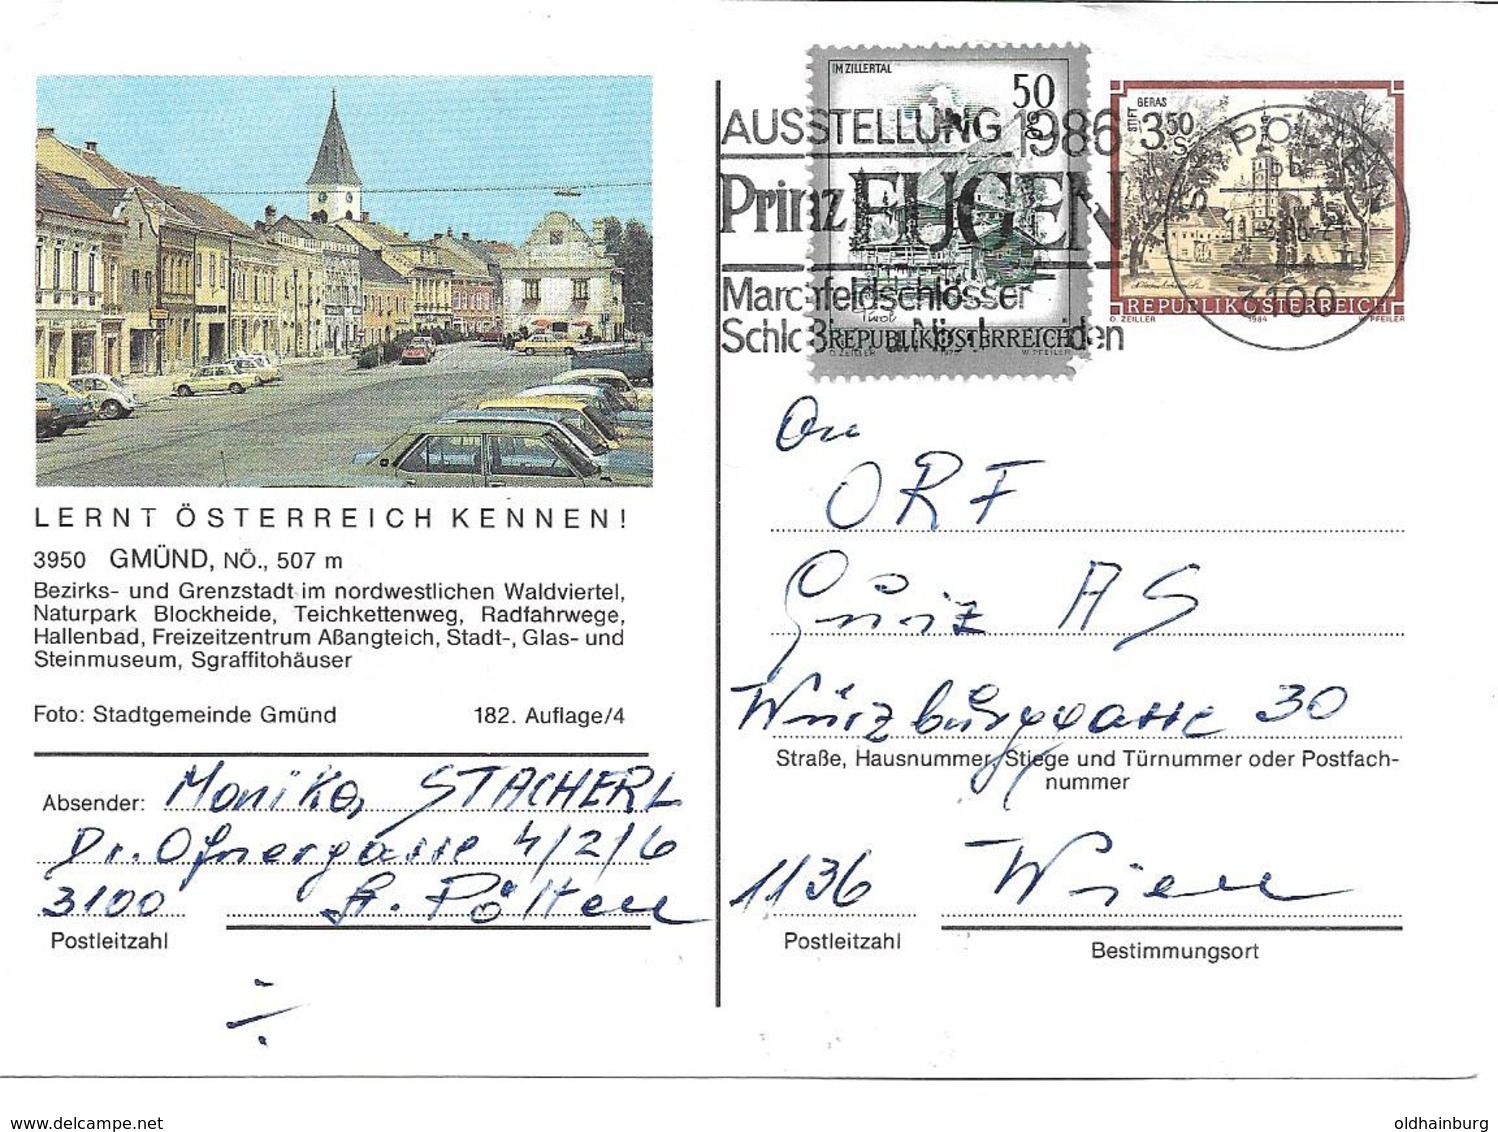 LERNT ÖSTERREICH KENNEN!
3950 GMÜND, NÖ., 507 m
Bezirks- und Grenzstadt im nordwestlichen Waldviertel,
Naturpark Blockheide, Teichkettenweg, Radfahrwege,
Hallenbad, Freizeitzentrum Aßangteich, Stadt-, Glas- und
Steinmuseum, Sgraffitohäuser
Foto: Stadtgemeinde Gmünd 182. Auflage/4
Absender: Monika STACHERL
Dr. Ofnergasse 4/2/6
3100 St. Pölten
Postleitzahl
IM ZILLERTAL
50
Tirol
REPUBLIK ÖSTERREICH
O. ZEILER 1975 W. PFEILER
STIFT GERAS
3.50
S
REPUBLIK ÖSTERREICH
O. ZEILLER 1984 W. PFEILER
AUSSTELLUNG 1986
Prinz EUGEN
Marchfeldschlösser
3100
An
ORF
Quiz AS
Würzburggasse 30
Straße, Hausnummer, Stiege und Türnummer oder Postfach-
nummer
1136 Wien
Postleitzahl Bestimmungsort
www.delcampe.net
oldhainburg